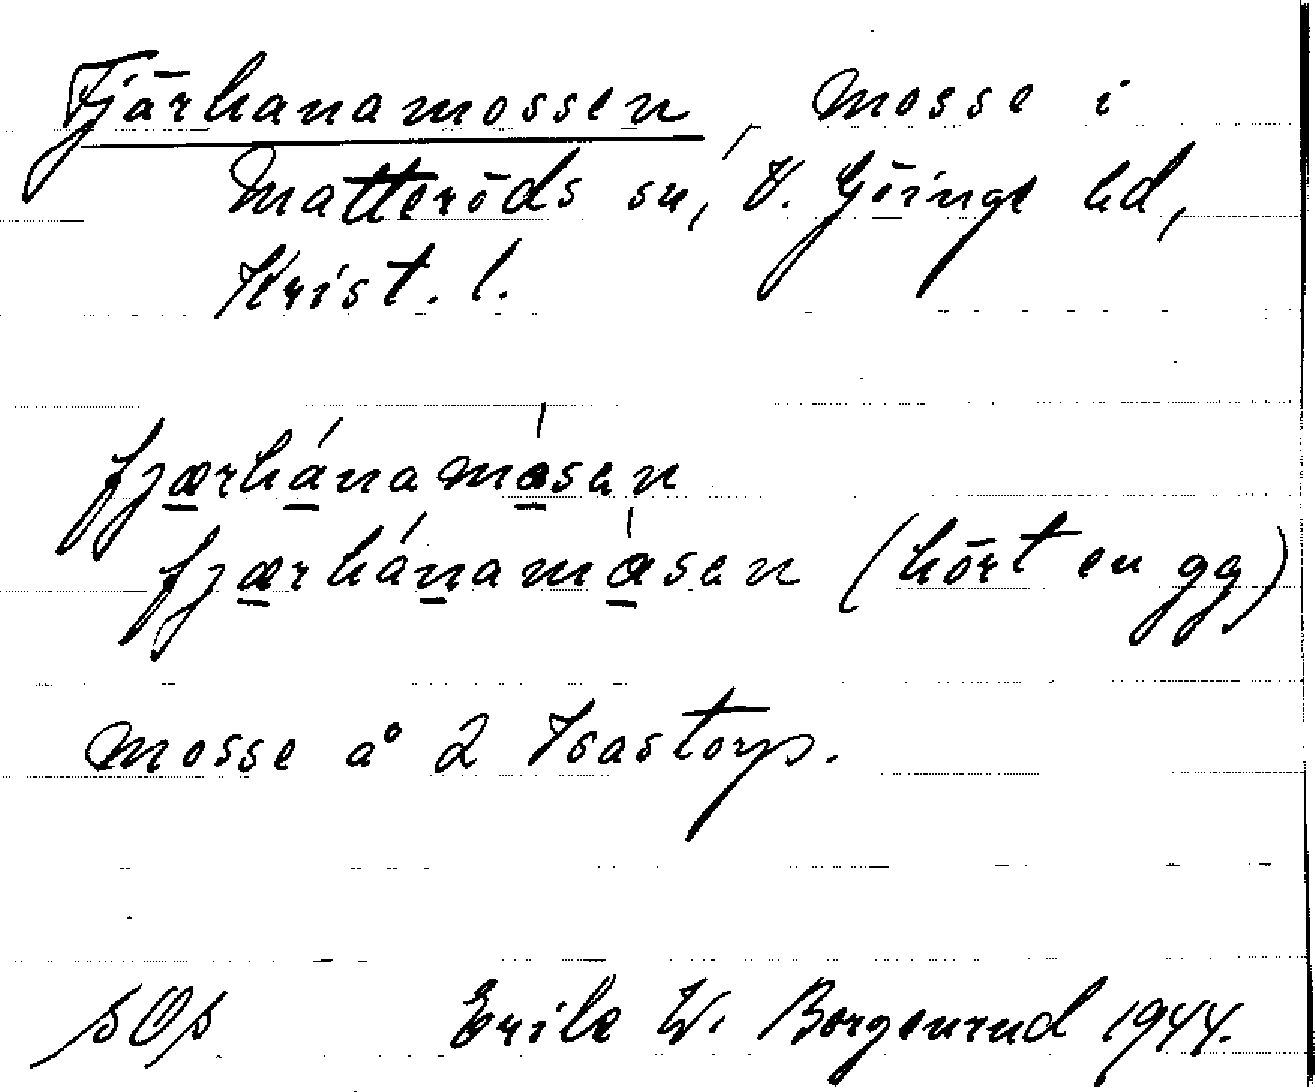 Fjärhanamossen, mosse i
Matteröds sn, V. Göinge hd,
Krist. l.
fjærhánamåsen
fjærhánamåsen (hört en gg)
mosse å 2 Isastorp.
sOs Erik W. Borgenrud 1944.